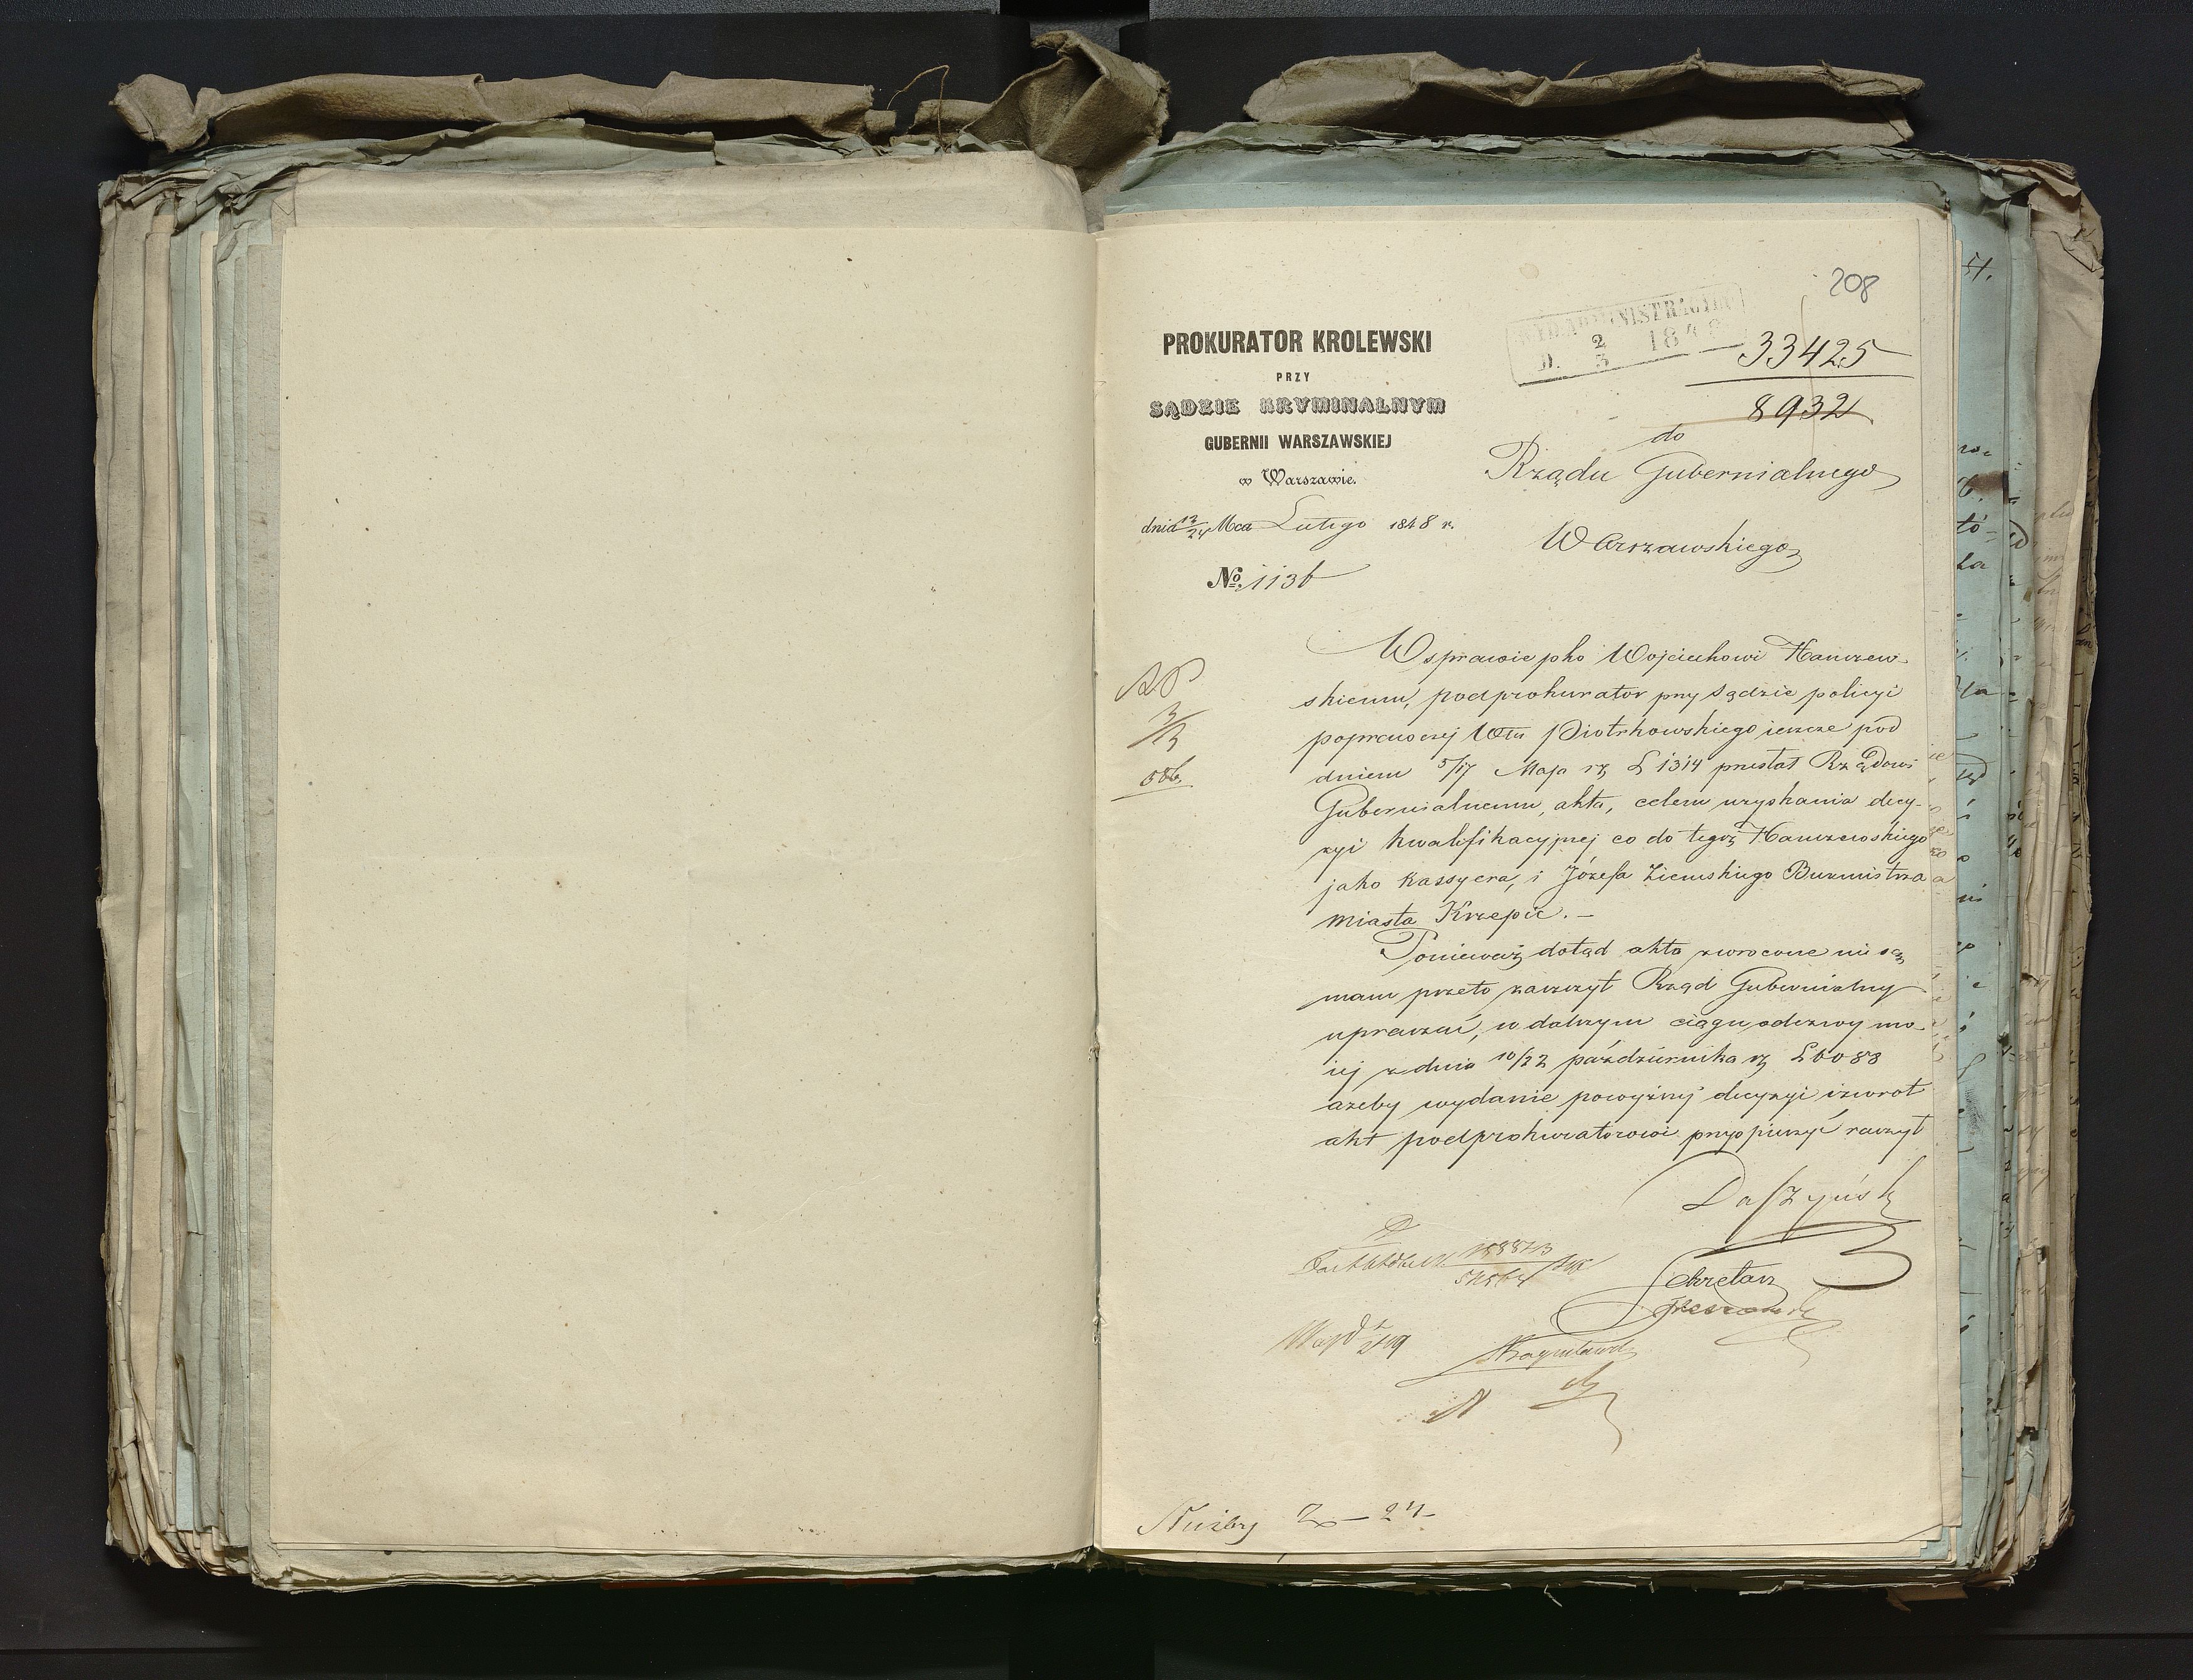 208
WYD. ADMINISTRACYJN
D. 2/3 1848
33425
8932
PROKURATOR KROLEWSKI
PRZY
SĄDZIE KRYMINALNYM
GUBERNII WARSZAWSKIEJ
w Warszawie.
dnia 12/24 Mca Lutego 1848 r.
No. 1136
do
Rządu Gubernialnego
Warszawskiego
W sprawie pko Wojciechowi Hanczew-
skiemu, podprokurator przy Sądzie policyi
poprawczej Włu Piotrkowskiego ieszcze pod
dniem 5/17 Maja rz L 1314 przesłał Rządowi
Gubernialnemu, akta, celem uzyskania decy-
zyi kwalifikacyjnej co do tegoż Hanczewskiego
jako Kassyera, i Józefa Ziemskiego Burmistrza
miasta Krzepic. –
Ponieważ dotąd akta zwrocone nie są,
mam przeto zaszczyt Rząd Gubernialny
upraszać, w dalszym ciągu odezwy mo-
iej z dnia 10/22 października rz L 6083
ażeby wydanie powyższej decyzyi i zwrot
akt podprokuratorowi przyspieszyć raczył
Daszyńsk
Sekretarz
54564